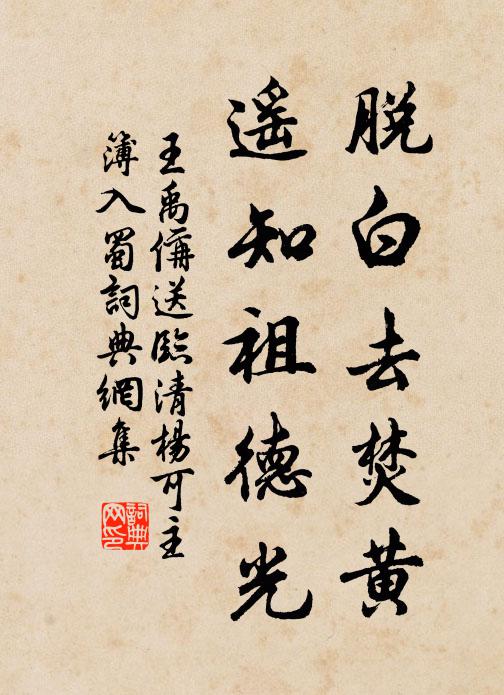 脱白去焚黄
遥知祖德光
王禹偁送臨清楊可主
簿入蜀詞典網集
詞典
网印